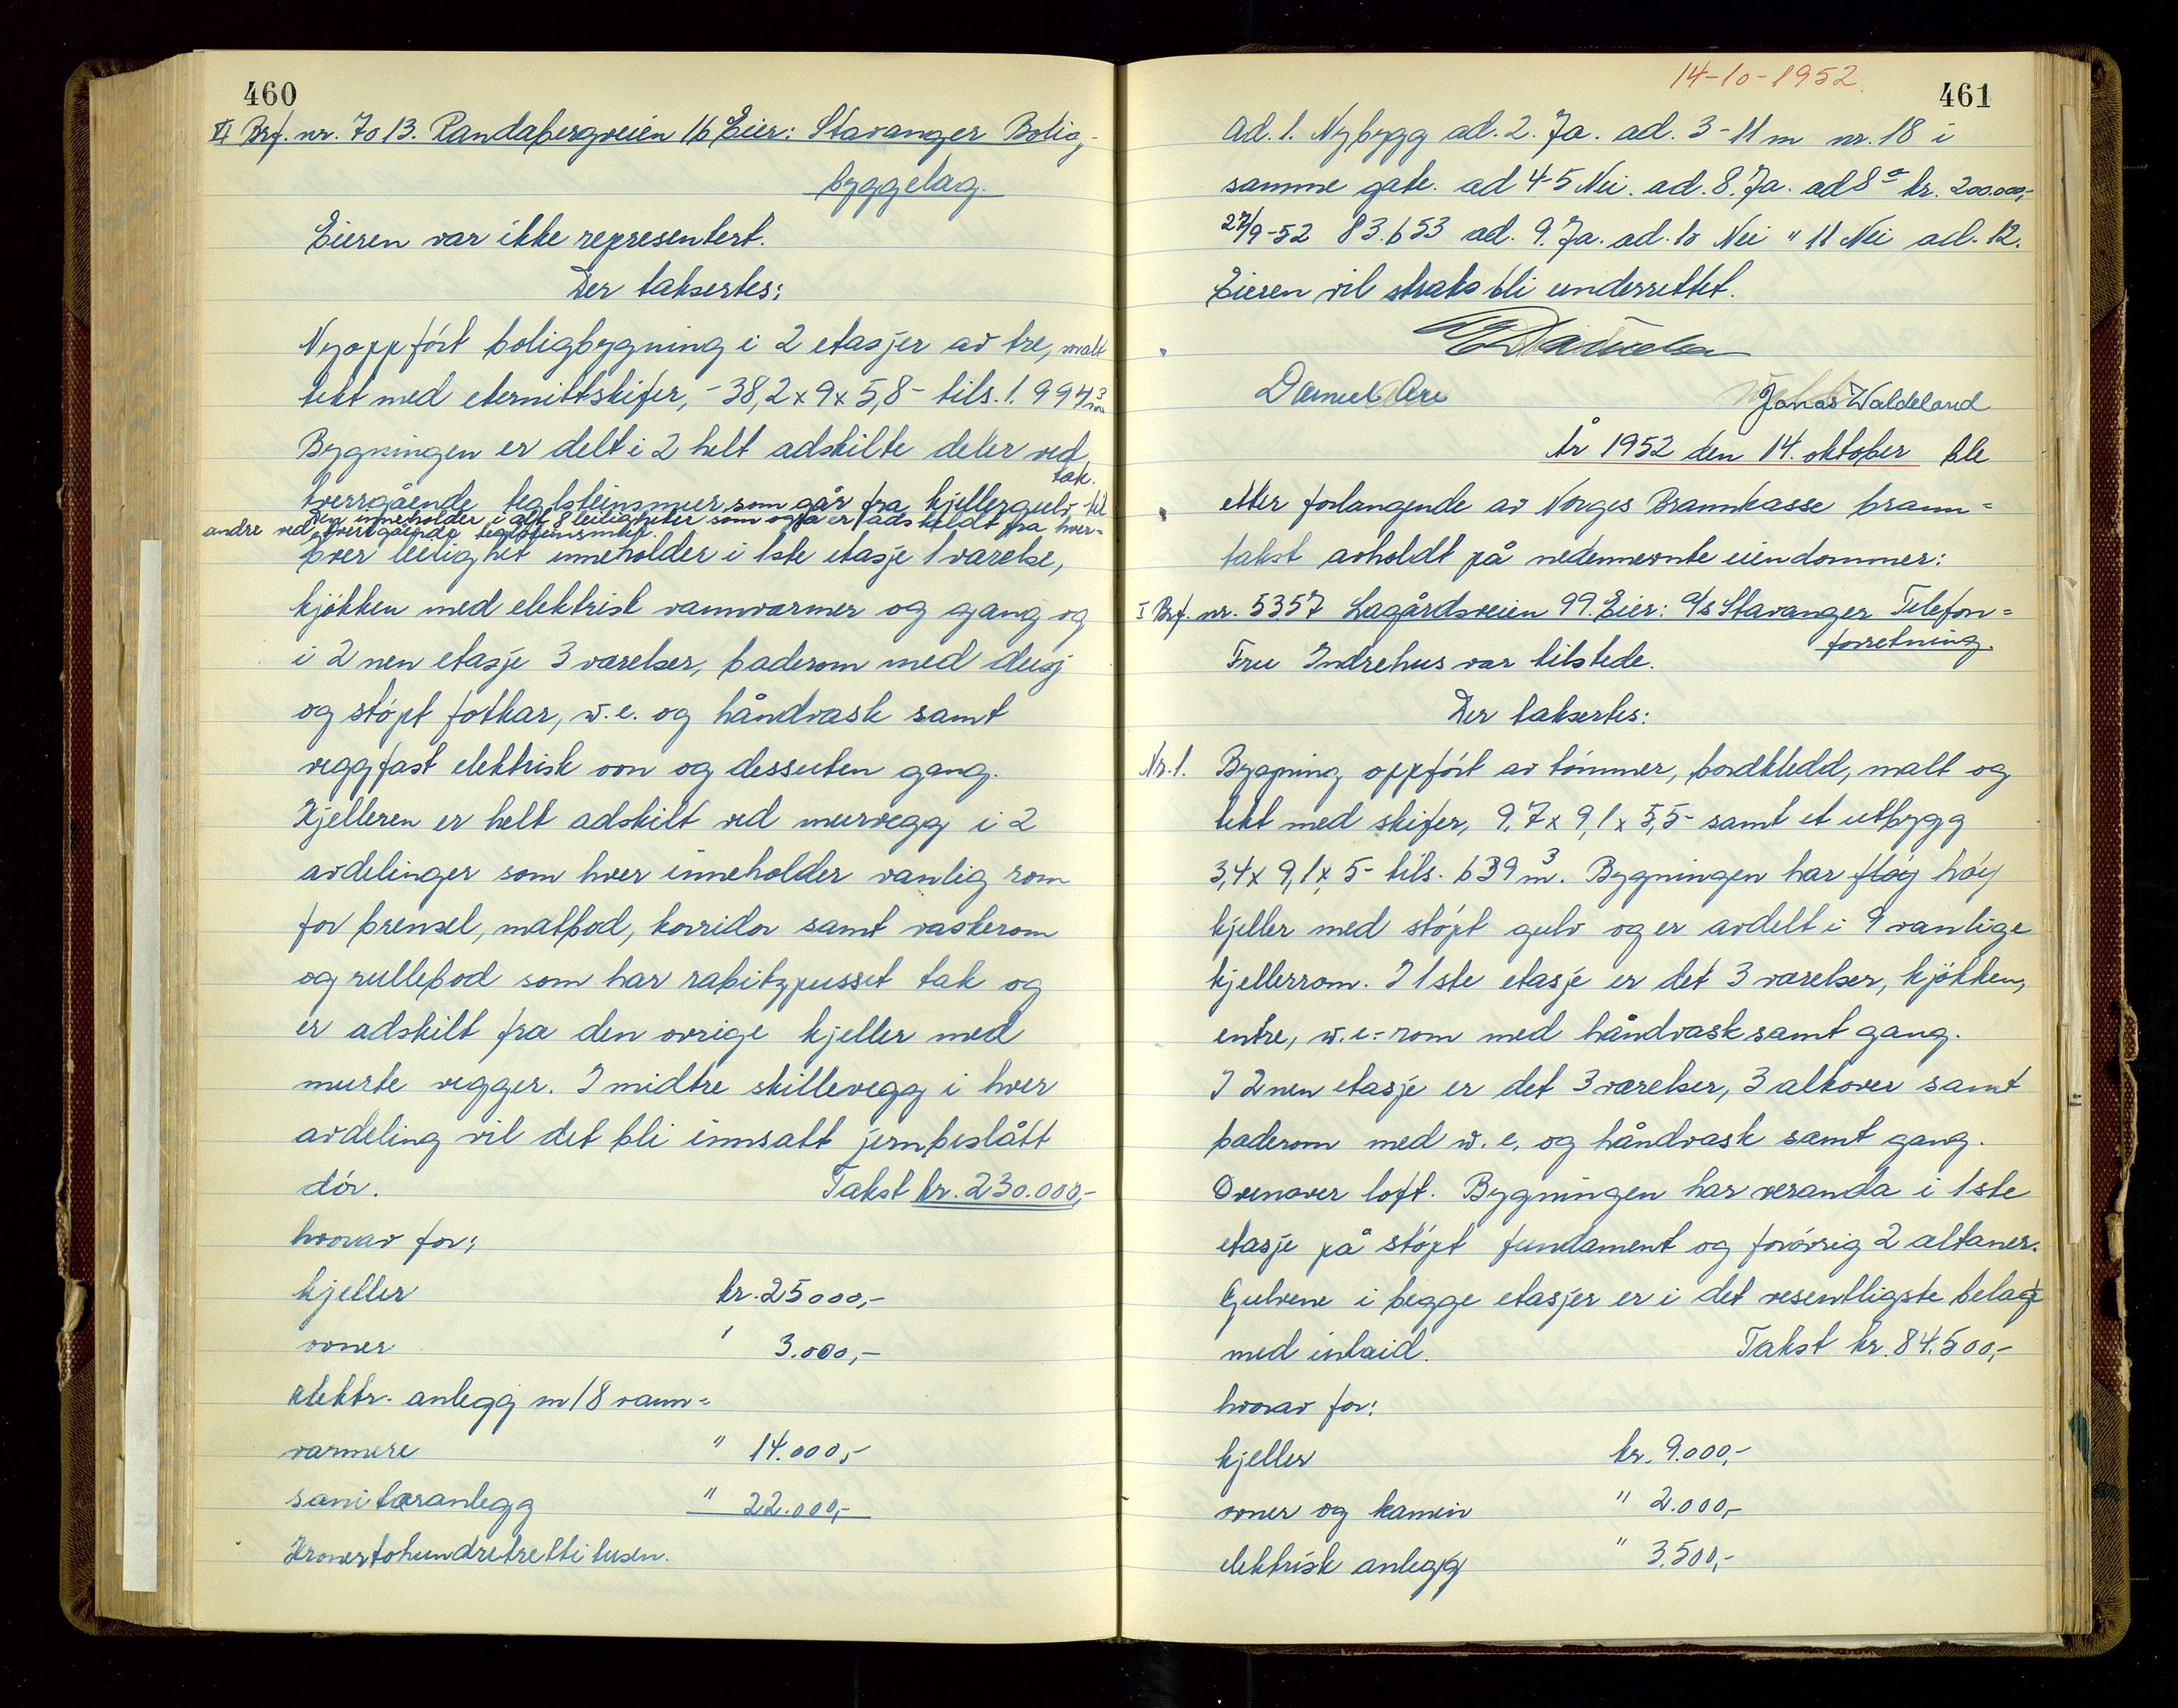 460
VI Brf. nr. 7013. Randabergveien 16 Eier: Stavanger Bolig-
byggelag.
Eieren var ikke representert.
Der taksertes:
Nyoppført boligbygning i 2 etasjer av tre, malt
tekt med eternittskifer, - 38,2 x 9 x 5,8 - tils. 1.994 m³
Bygningen er delt i 2 helt adskilte deler ved
tak.
tverrgående teglsteinsmur som går fra kjellergulv til
Den inneholder i alt 8 leiligheter som også er adskildt fra hver-
andre ved tverrgående teglsteinsmur.
Hver leilighet inneholder i 1ste etasje 1 værelse,
kjøkken med elektrisk vannvarmer og gang og
i 2nen etasje 3 værelser, baderom med dusj
og støpt fotkar, w.c. og håndvask samt
veggfast elektrisk ovn og dessuten gang.
Kjelleren er helt adskilt ved murvegg i 2
avdelinger som hver inneholder vanlig rom
for brensel, matbod, korridor samt vaskerom
og rullebod som har rabitzpusset tak og
er adskilt fra den øvrige kjeller med
murte vegger. I midtre skillevegg i hver
avdeling vil det bli innsatt jernbeslått
dør. Takst kr. 230.000,-
hvorav for:
kjeller kr. 25000,-
ovner " 3.000,-
elektr. anlegg m/8 vann-
varmere " 14.000,-
sanitæranlegg " 22.000,-
Kronertohundretrettitusen.
14-10-1952.
461
Ad. 1. Nybygg ad. 2. Ja. ad. 3 - 11 m nr. 18 i
samme gate. ad 4-5 Nei. ad. 8. Ja. ad 8a kr. 200.000,-
27/9-52 83.653 ad. 9. Ja. ad. 10 Nei " 11 Nei ad. 12.
Eieren vil straks bli underrettet.
Danielsen
Daniel Are Jonas Waldeland
År 1952 den 14. oktober ble
etter forlangende av Norges Brannkasse brann-
takst avholdt på nedennevnte eiendommer:
I Brf. nr. 5357 Lagårdsveien 99. Eier: A/s Stavanger Telefon-
forretning.
Fru Indrehus var tilstede.
Der taksertes:
Nr. 1. Bygning oppført av tømmer, bordkledd, malt og
tekt med skifer, 9,7 x 9,1 x 5,5 - samt et utbygg
3,4 x 9,1 x 5 - tils. 639 m³. Bygningen har fløy høy
kjeller med støpt gulv og er avdelt i 9 vanlige
kjellerrom. I 1ste etasje er det 3 værelser, kjøkken,
entre, w.c.-rom med håndvask samt gang.
I 2nen etasje er det 3 værelser, 3 alkover samt
baderom med w.c. og håndvask samt gang.
Ovenover loft. Bygningen har veranda i 1ste
etasje på støpt fundament og forøvrig 2 altaner.
Gulvene i begge etasjer er i det vesentligste belagt
med inlaid. Takst kr. 84.500,-
hvorav for:
kjeller kr. 9.000,-
ovner og kamin " 2.000,-
elektrisk anlegg " 3.500,-